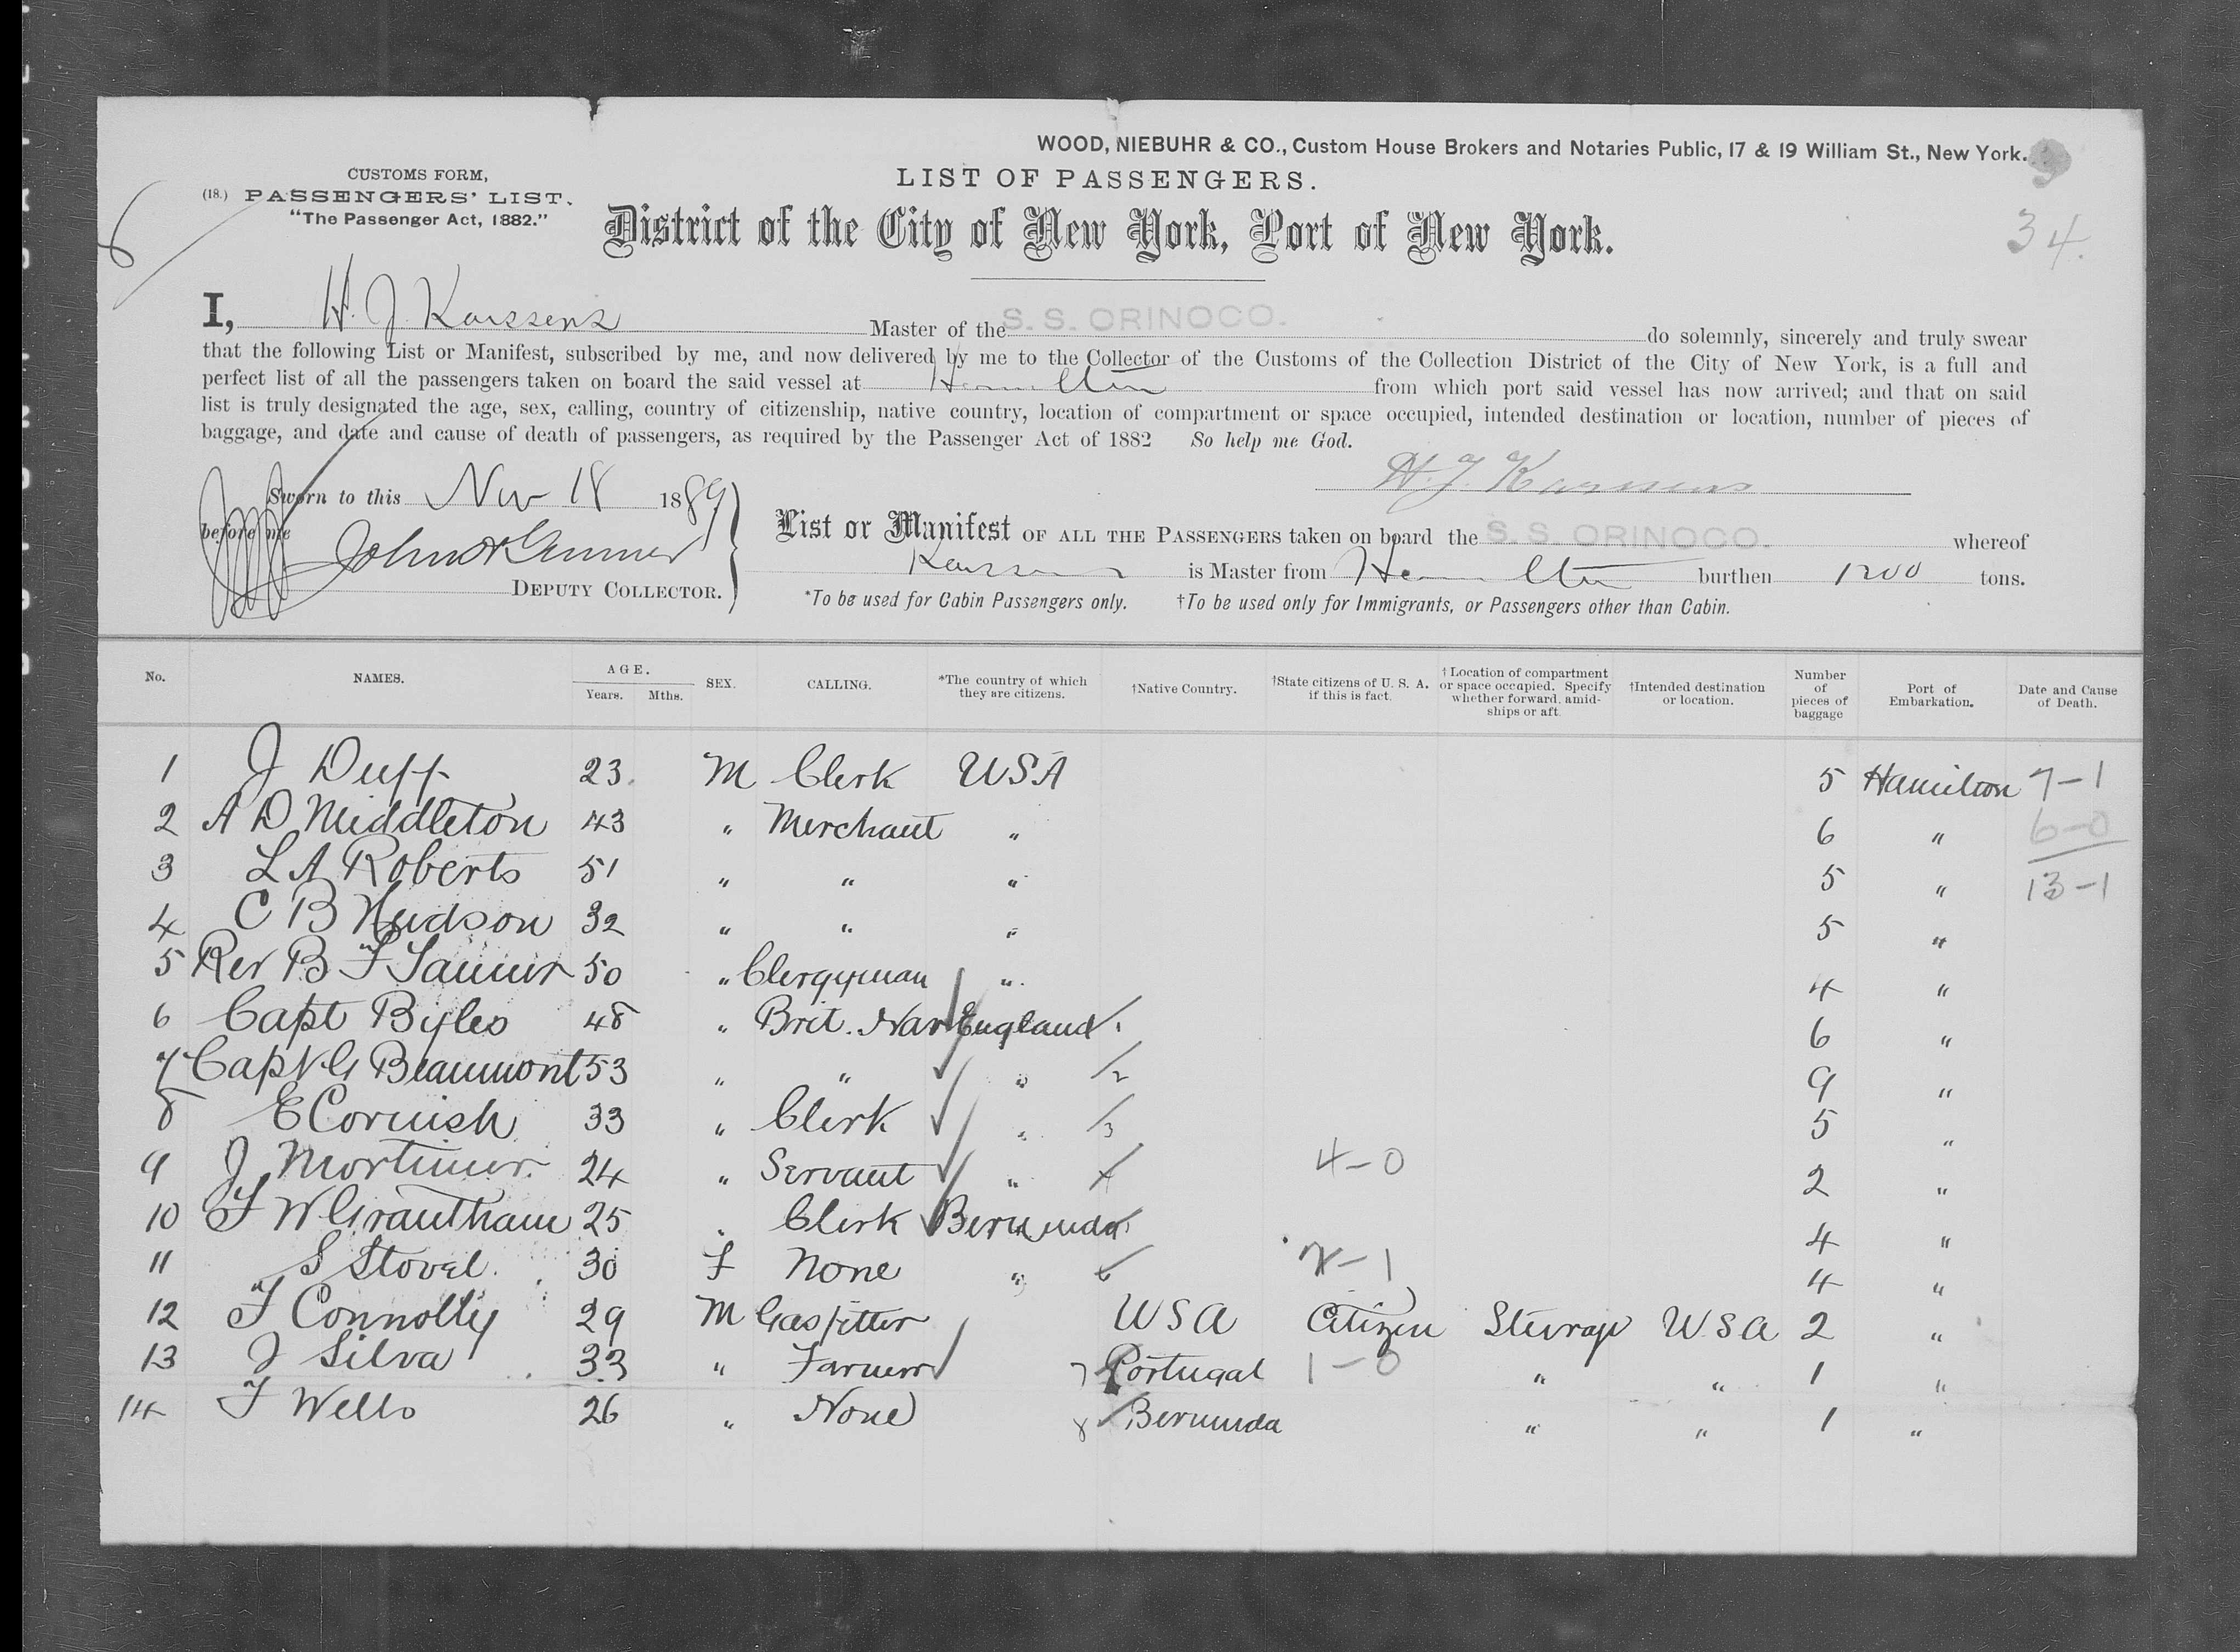 WOOD, NIEBUHR & CO., Custom House Brokers and Notaries Public, 17 & 19 William St., New York.
CUSTOMS FORM,
(18.) PASSENGERS' LIST.
"The Passenger Act, 1882."
LIST OF PASSENGERS.
District of the City of New York, Port of New York.
34.
I, H. J. Karssens Master of the S. S. ORINOCO. do solemnly, sincerely and truly swear
that the following List or Manifest, subscribed by me, and now delivered by me to the Collector of the Customs of the Collection District of the City of New York, is a full and
perfect list of all the passengers taken on board the said vessel at Hamilton from which port said vessel has now arrived; and that on said
list is truly designated the age, sex, calling, country of citizenship, native country, location of compartment or space occupied, intended destination or location, number of pieces of
baggage, and date and cause of death of passengers, as required by the Passenger Act of 1882 So help me God.
H. J. Karssens
Sworn to this Nov 18 1889
before me
DEPUTY COLLECTOR.
List or Manifest OF ALL THE PASSENGERS taken on board the S. S. ORINOCO. whereof
Karssens is Master from Hamilton burthen 1200 tons.
*To be used for Cabin Passengers only. †To be used only for Immigrants, or Passengers other than Cabin.
No. NAMES. AGE. Years. Mths. SEX. CALLING. *The country of which they are citizens. †Native Country. †State citizens of U. S. A. if this is fact. †Location of compartment or space occupied. Specify whether forward, amid-ships or aft. †Intended destination or location. Number of pieces of baggage Port of Embarkation. Date and Cause of Death.
1 J Duff 23. M Clerk USA 5 Hamilton 7-1
2 A D Middleton 43 " Merchant " 6 " 6-0
3 L A Roberts 51 " " " 5 " 13-1
4 C B Hudson 32 " " " 5 "
5 Rev B F 50 " Clergyman " 4 "
6 Capt Byles 48 " Brit. Nav England 1 6 "
7 Capt G Beaumont 53 " " " 2 9 "
8 E Cornish 33 " Clerk " 3 5 "
9 J Mortimer 24 " Servant " 4 4-0 2 "
10 F W Grantham 25 " Clerk Bermuda 4 "
11 S Stovel. 30 F None " 6 7-1 4 "
12 F Connolly 29 M Gasfitter USA Citizen Steerage USA 2 "
13 J Silva 33 " Farmer 7 Portugal 1-0 " " 1 "
14 F Wells 26 " None 8 Bermuda " " 1 "